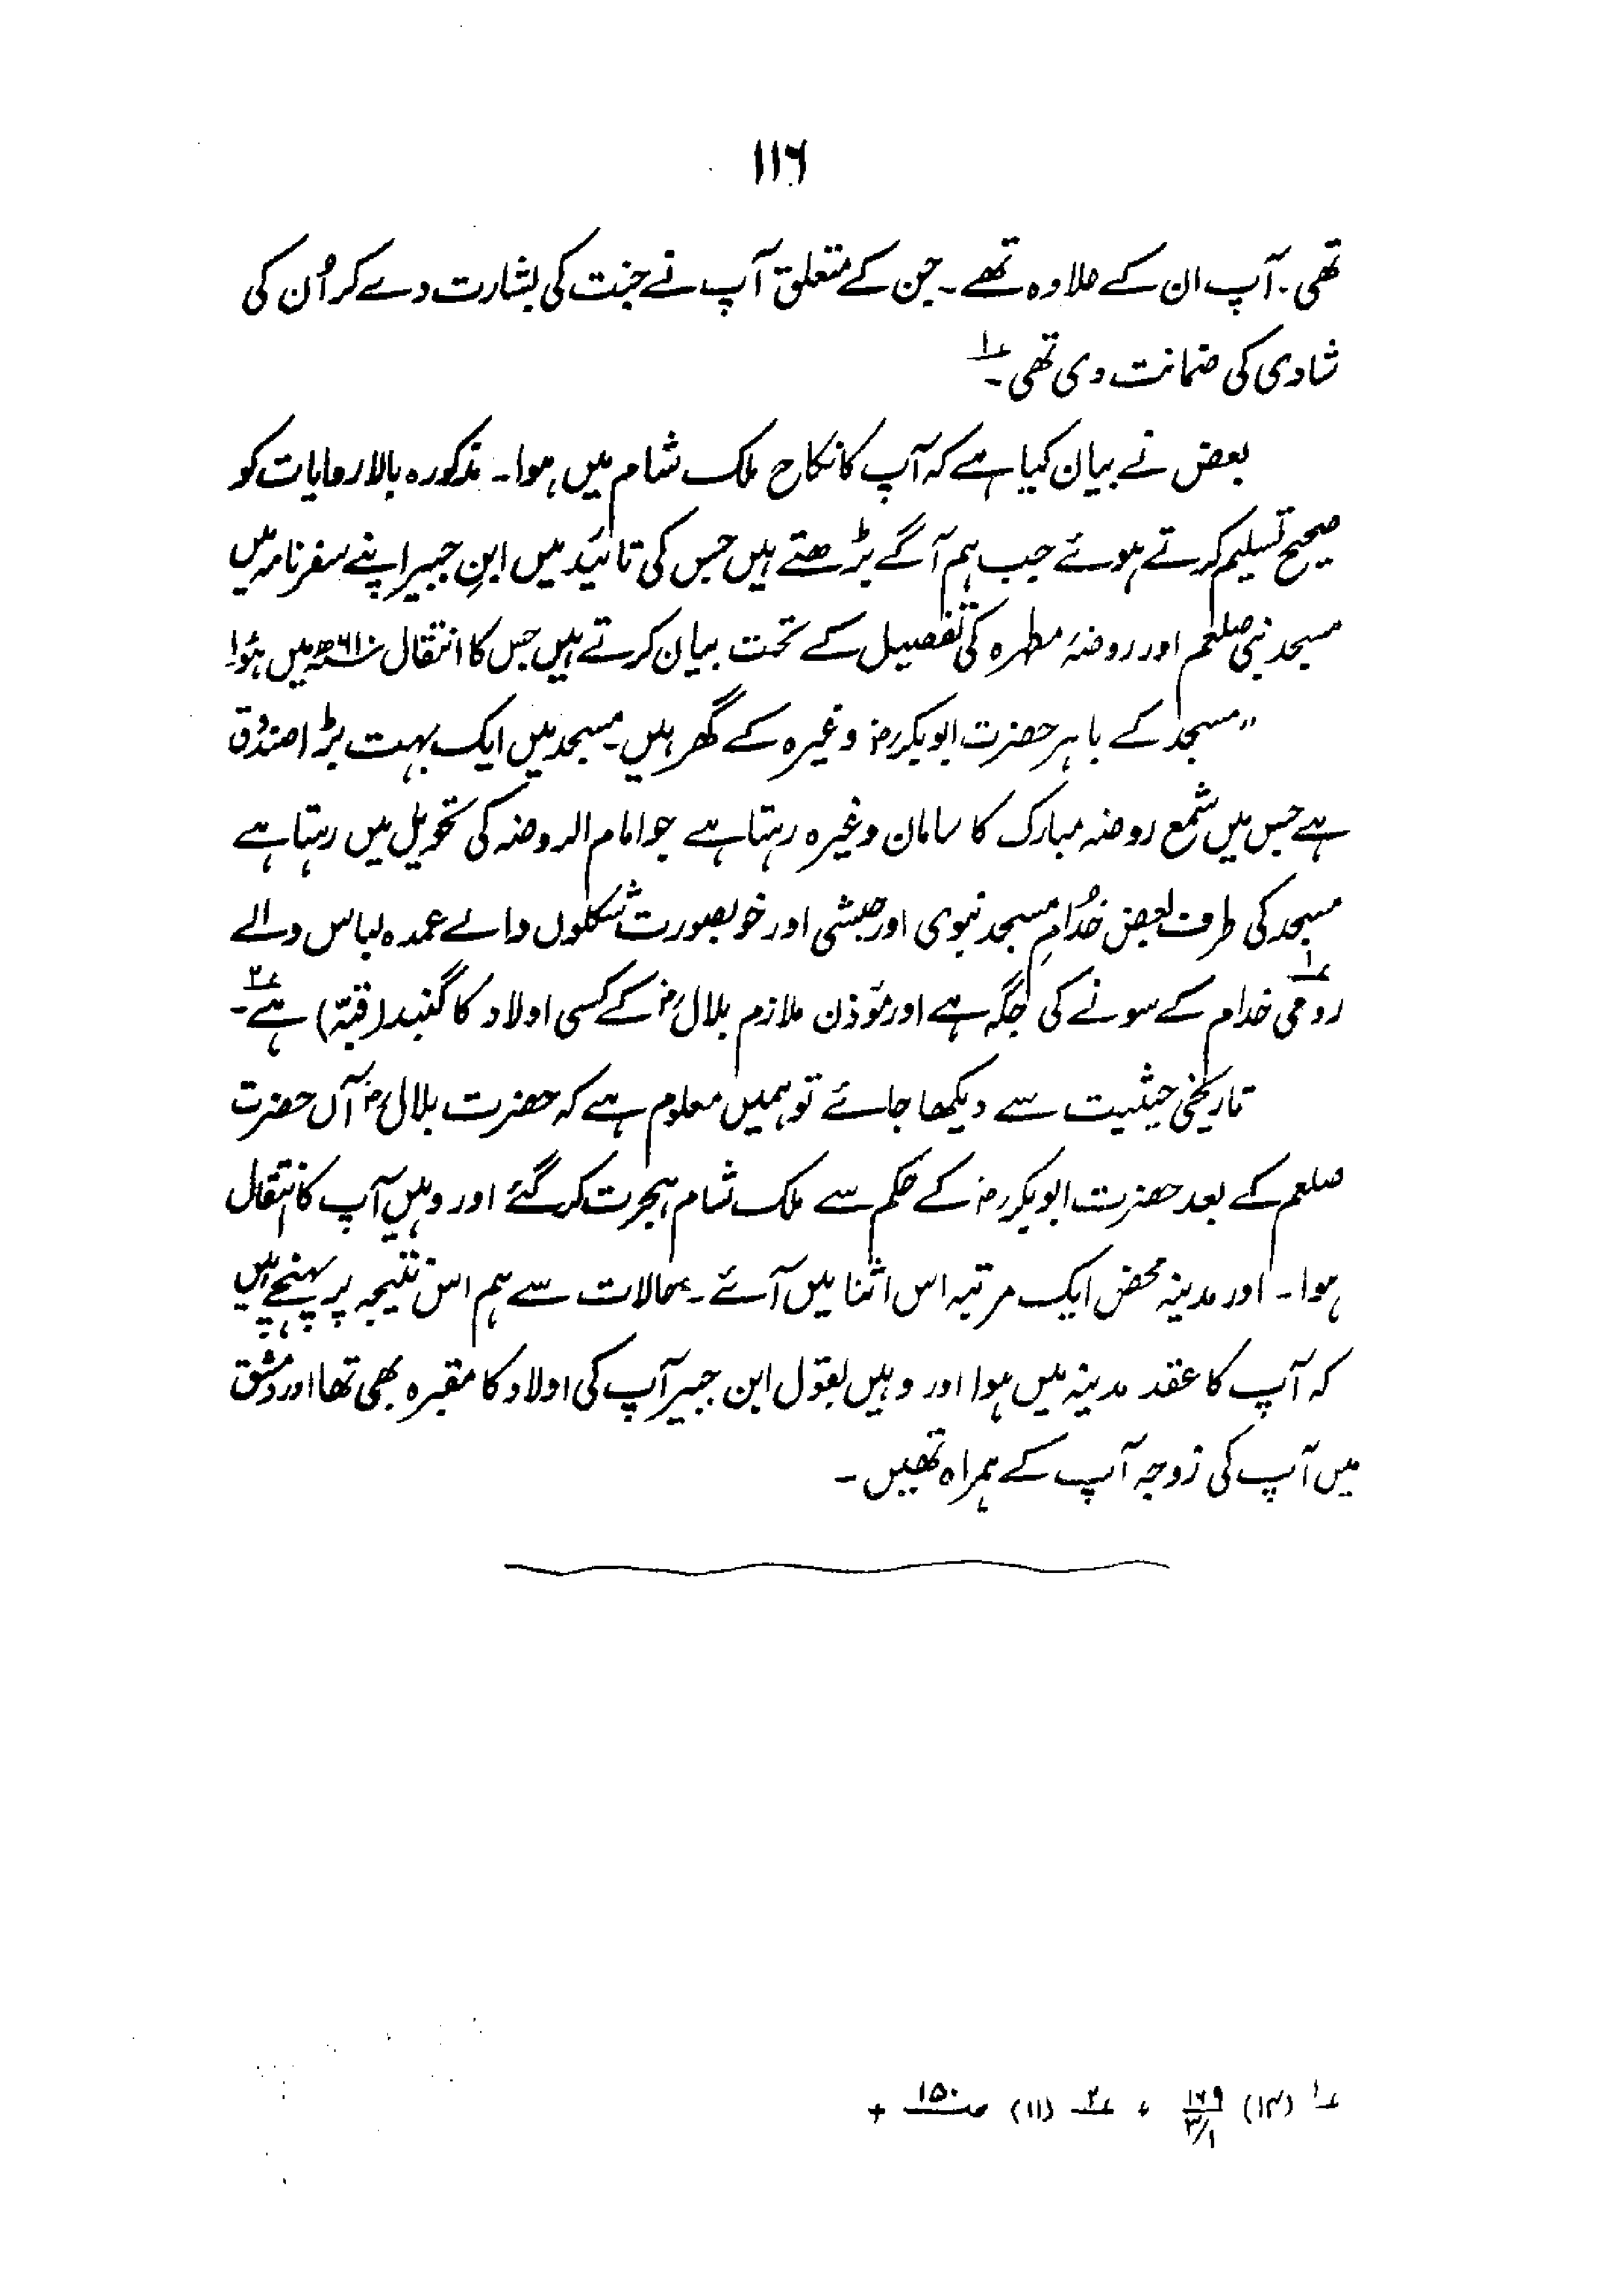 ۱۱۶
تھی۔ آپ ان کے علاوہ تھے۔ جن کے متعلق آپ نے جنت کی بشارت دے کر اُن کی
شادی کی ضمانت دی تھی۔ ؏۱
بعض نے بیان کیا ہے کہ آپ کا نکاح ملک شام میں ہوا۔ مذکورہ بالا روایات کو
صحیح تسلیم کرتے ہوئے جب ہم آگے بڑھتے ہیں جس کی تائید میں ابنِ جبیر اپنے سفر نامہ میں
مسجد نبی صلعم اور روضۂ مطہرہ کی تفصیل کے تحت بیان کرتے ہیں جس کا انتقال میں ہؤا
"مسجد کے باہر حضرت ابوبکر رض وغیرہ کے گھر ہیں۔ مسجد میں ایک بہت بڑا صندوق
ہے جس میں شمع روضہ مبارک کا سامان وغیرہ رہتا ہے جو امام الروضہ کی تحویل میں رہتا ہے
مسجد کی طرف بعض خُدامِ مسجد نبوی اور حبشی اور خوبصورت شکلوں والے عمدہ لباس والے
رومی ؏۱ خدام کے سونے کی جگہ ہے اور مؤذن ملازم بلال رض کے کسی اولاد کا گنبد (قبّہ) ہے۔ ؏۲
تاریخی حیثیت سے دیکھا جائے تو ہمیں معلوم ہے کہ حضرت بلال رض آں حضرت
صلعم کے بعد حضرت ابوبکر رض کے حکم سے ملک شام ہجرت کر گئے اور وہیں آپ کا انتقال
ہوا۔ اور مدینہ محض ایک مرتبہ اس اثنا میں آئے۔ بحالات سے ہم اس نتیجہ پر پہنچے ہیں
کہ آپ کا عقد مدینہ میں ہوا اور وہیں بقول ابن جبیر آپ کی اولاد کا مقبرہ بھی تھا اور دمشق
میں آپ کی زوجہ آپ کے ہمراہ تھیں۔
؏۱ (۱۳) ۱۶۹ ۳/۱ ، ؏۲ (۱۱) صـ ۱۵۰ +